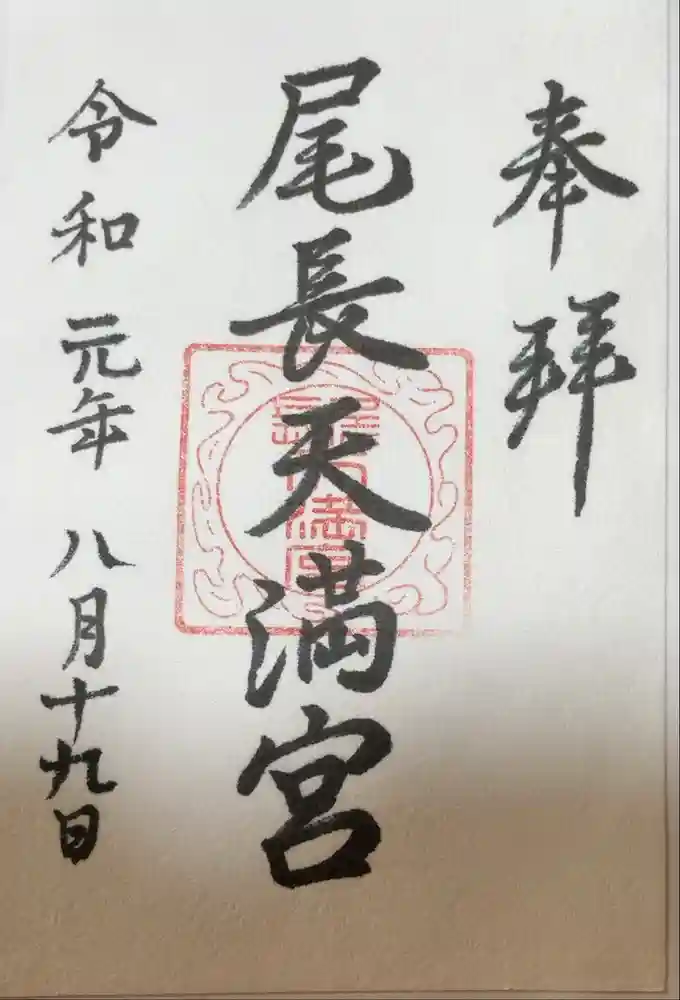 奉拝
尾長天満宮
令和元年八月十九日
尾長天満宮